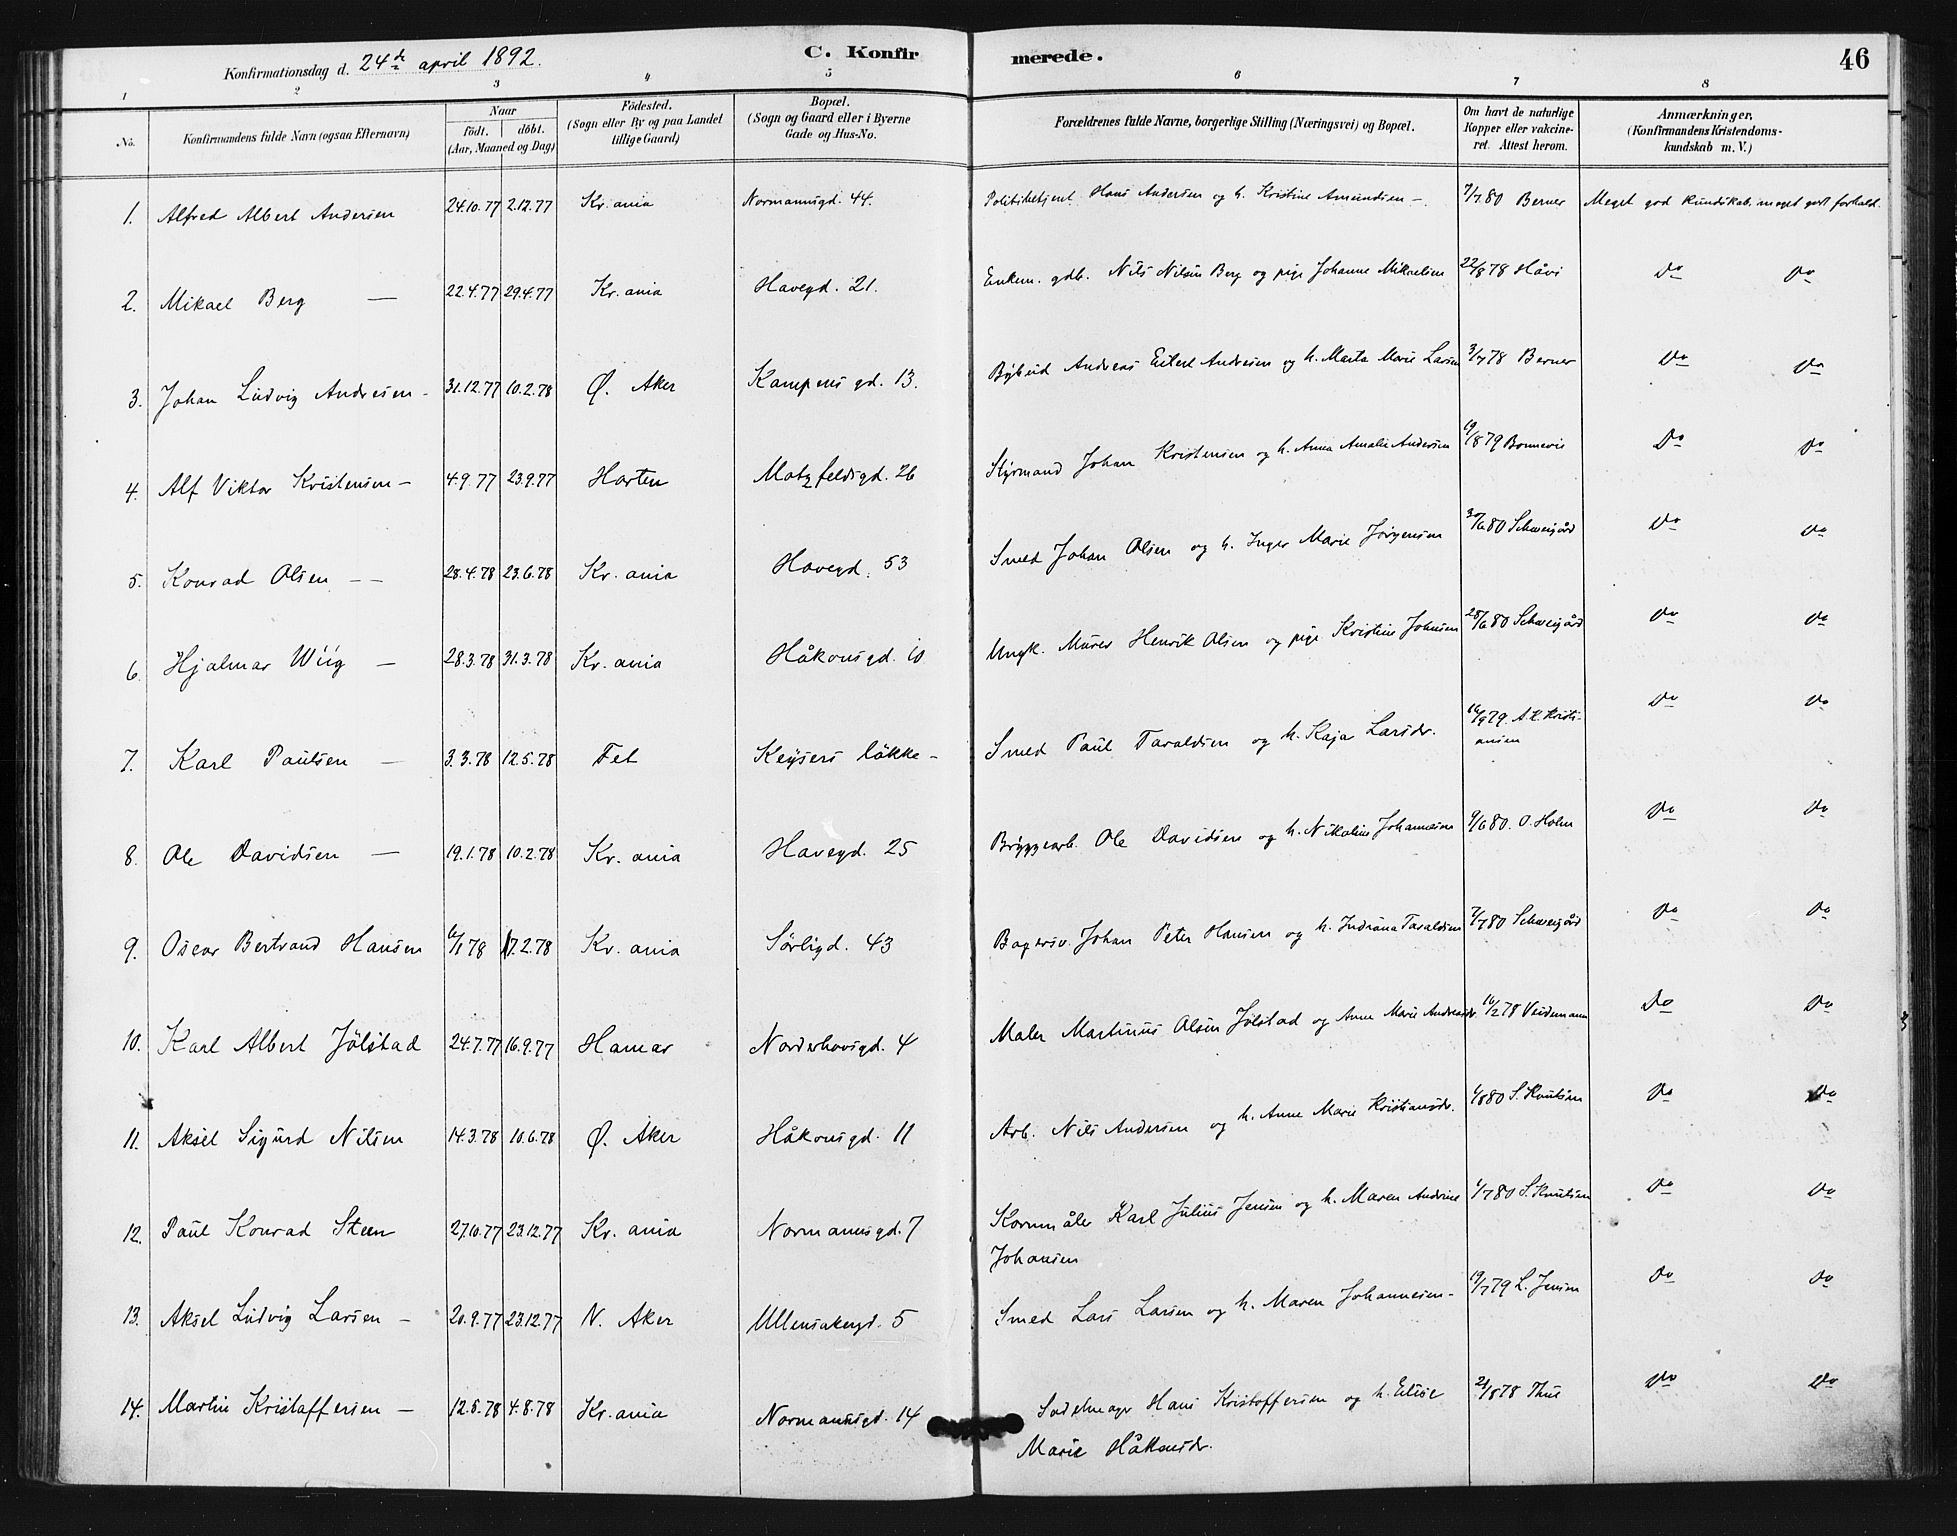 Konfirmationsdag d. 24de april 1892.
C. Konfirmerede.
46
1 2 3 4 5 6 7 8
No.
Konfirmandens fulde Navn (ogsaa Efternavn)
Naar
født. døbt.
(Aar, Maaned og Dag)
Födested.
(Sogn eller By og paa Landet
tillige Gaard)
Bopæl.
(Sogn og Gaard eller i Byerne
Gade og Hus-No.
Forældrenes fulde Navne, borgerlige Stilling (Næringsvei) og Bopæl.
Om havt de naturlige
Kopper eller vakcine-
ret. Attest herom.
Anmærkninger.
(Konfirmandens Kristendoms-
kundskab m. V.)
1. Alfred Albert Andersen 24.10.77 2.12.77 Kr.ania Normannsgd. 44. Politibetjent Hans Andersen og h. Kristine Amundsen - 7/7.80 Berner Meget god kundskab, meget godt forhold.
2. Mikael Berg — 22.4.77 29.4.77 Kr.ania Havegd. 21. Enkem. gdb. Nils Nilsen Berg og pige Johanne Mikaelsen 22/8 78 Håvi Do Do
3. Johan Ludvig Andresen - 31.12.77 10.2.78 Ø. Aker Kampens gd. 13. Bybud Andreas Eilert Andresen og h. Marta Marie Larsen 3/7 78 Berner Do Do
4. Alf Viktor Kristensen - 4.9.77 23.9.77 Horten Motzfeldsgd. 26 Styrmand Johan Kristensen og h. Anna Amalie Andersen 19/8 79 Bonnevie Do Do
5. Konrad Olsen - - 28.4.78 23.6.78 Kr.ania Havegd. 53 Smed Johan Olsen og h. Inger Marie Jørgensen 30/6 80 Schweigård Do Do
6. Hjalmar Wiig — 28.3.78 31.3.78 Kr.ania Håkonsgd. 10 Ungk. Murer Henrik Olsen og pige Kristine Johnsen 28/6 80 Schweigård Do Do
7. Karl Paulsen — 3.3.78 12.5.78 Fet Keysers løkke - Smed Paul Taraldsen og h. Kaja Larsdr. 16/9 79. A.K. Kristi-
ansen Do Do
8. Ole Davidsen — 19.1.78 10.2.78 Kr.ania Havegd. 25 Bryggearb. Ole Davidsen og h. Nikoline Johannesen 9/6 80. O. Holm Do Do
9. Oscar Bertrand Hansen 6/1 78 17.2.78 Kr.ania Sørligd. 43 Bagersv. Johan Peter Hansen og h. Indiana Taraldsen 7/7 80 Schweigård Do Do
10. Karl Albert Jølstad 24.7.77 16.9.77 Hamar Norderhovsgd. 4 Maler Martinius Olsen Jølstad og Anne Marie Andreasdr. 16/2 78 Veidemann Do Do
11. Aksel Sigurd Nilsen 14.3.78 10.6.78 Ø. Aker Håkonsgd. 11 Arb. Nils Andersen og h. Anne Marie Kristiansdr. 6/8 80 S. Knutsen Do Do
12. Paul Konrad Steen 27.10.77 23.12.77 Kr.ania Normannsgd. 7 Kornmåler Karl Julius Jensen og h. Maren Andrine
Johansen 6/7 80 S. Knutsen Do Do
13. Aksel Ludvig Larsen - 20.9.77 23.12.77 N. Aker Ullensakergd. 5 Smed Lars Larsen og h. Maren Johannesen - 19/7 79 L. Jensen Do Do
14. Martin Kristoffersen - 12.5.78 4.8.78 Kr.ania Normannsgd. 14 Sadelmager Hans Kristoffersen og h. Elise
Marie Håkonsdr. 21/8 78 Thue Do Do